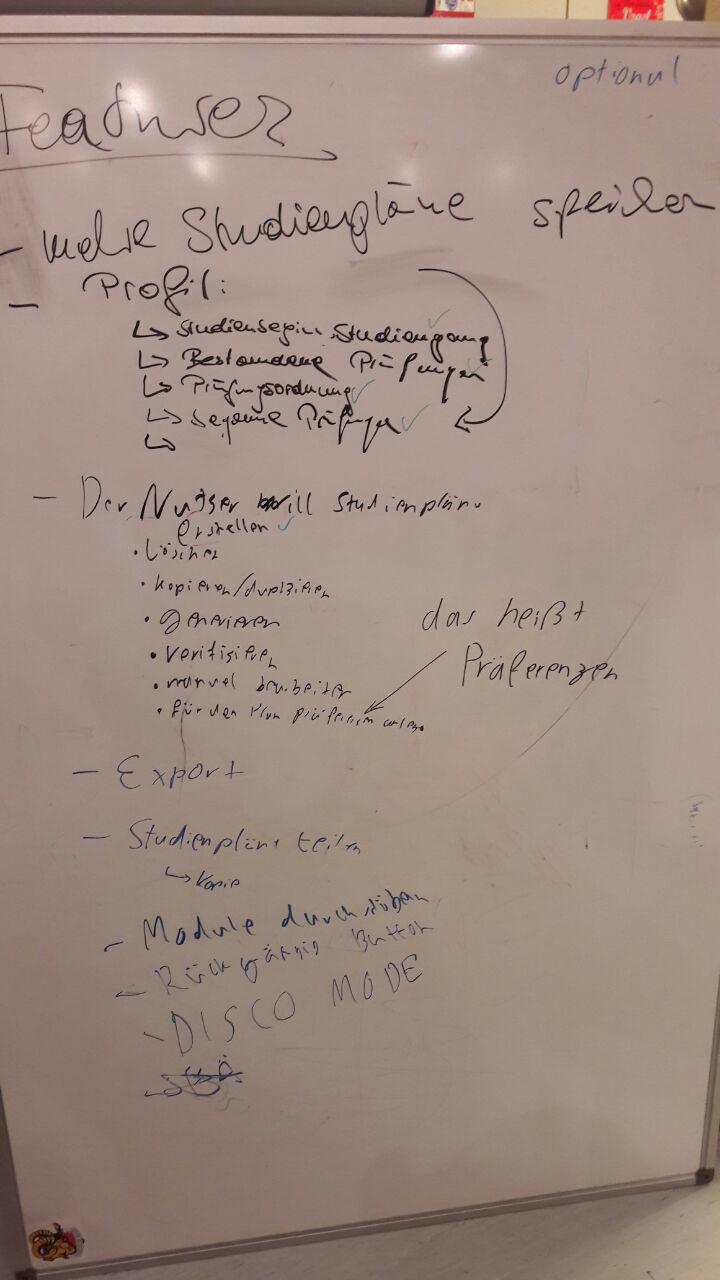 optional
Features
- mehre Studienpläne speichern
- Profil:
↳ Studienbeginn, Studiengang ✓
↳ Bestandene Prüfungen ✓
↳ Prüfungsordnung ✓
↳ Begonne Prüfungen ✓
↳
- Der Nutzer will Studienpläne
erstellen ✓
• löschen
• kopieren/duplizieren
• generieren
• verifizieren
• manuel bearbeiten
• für den Plan präferenzen
das heißt
Präferenzen
- Export
- Studienpläne teilen
↳ Kopie
- Module durchstöbern
- Rückgängig Button
- DISCO MODE